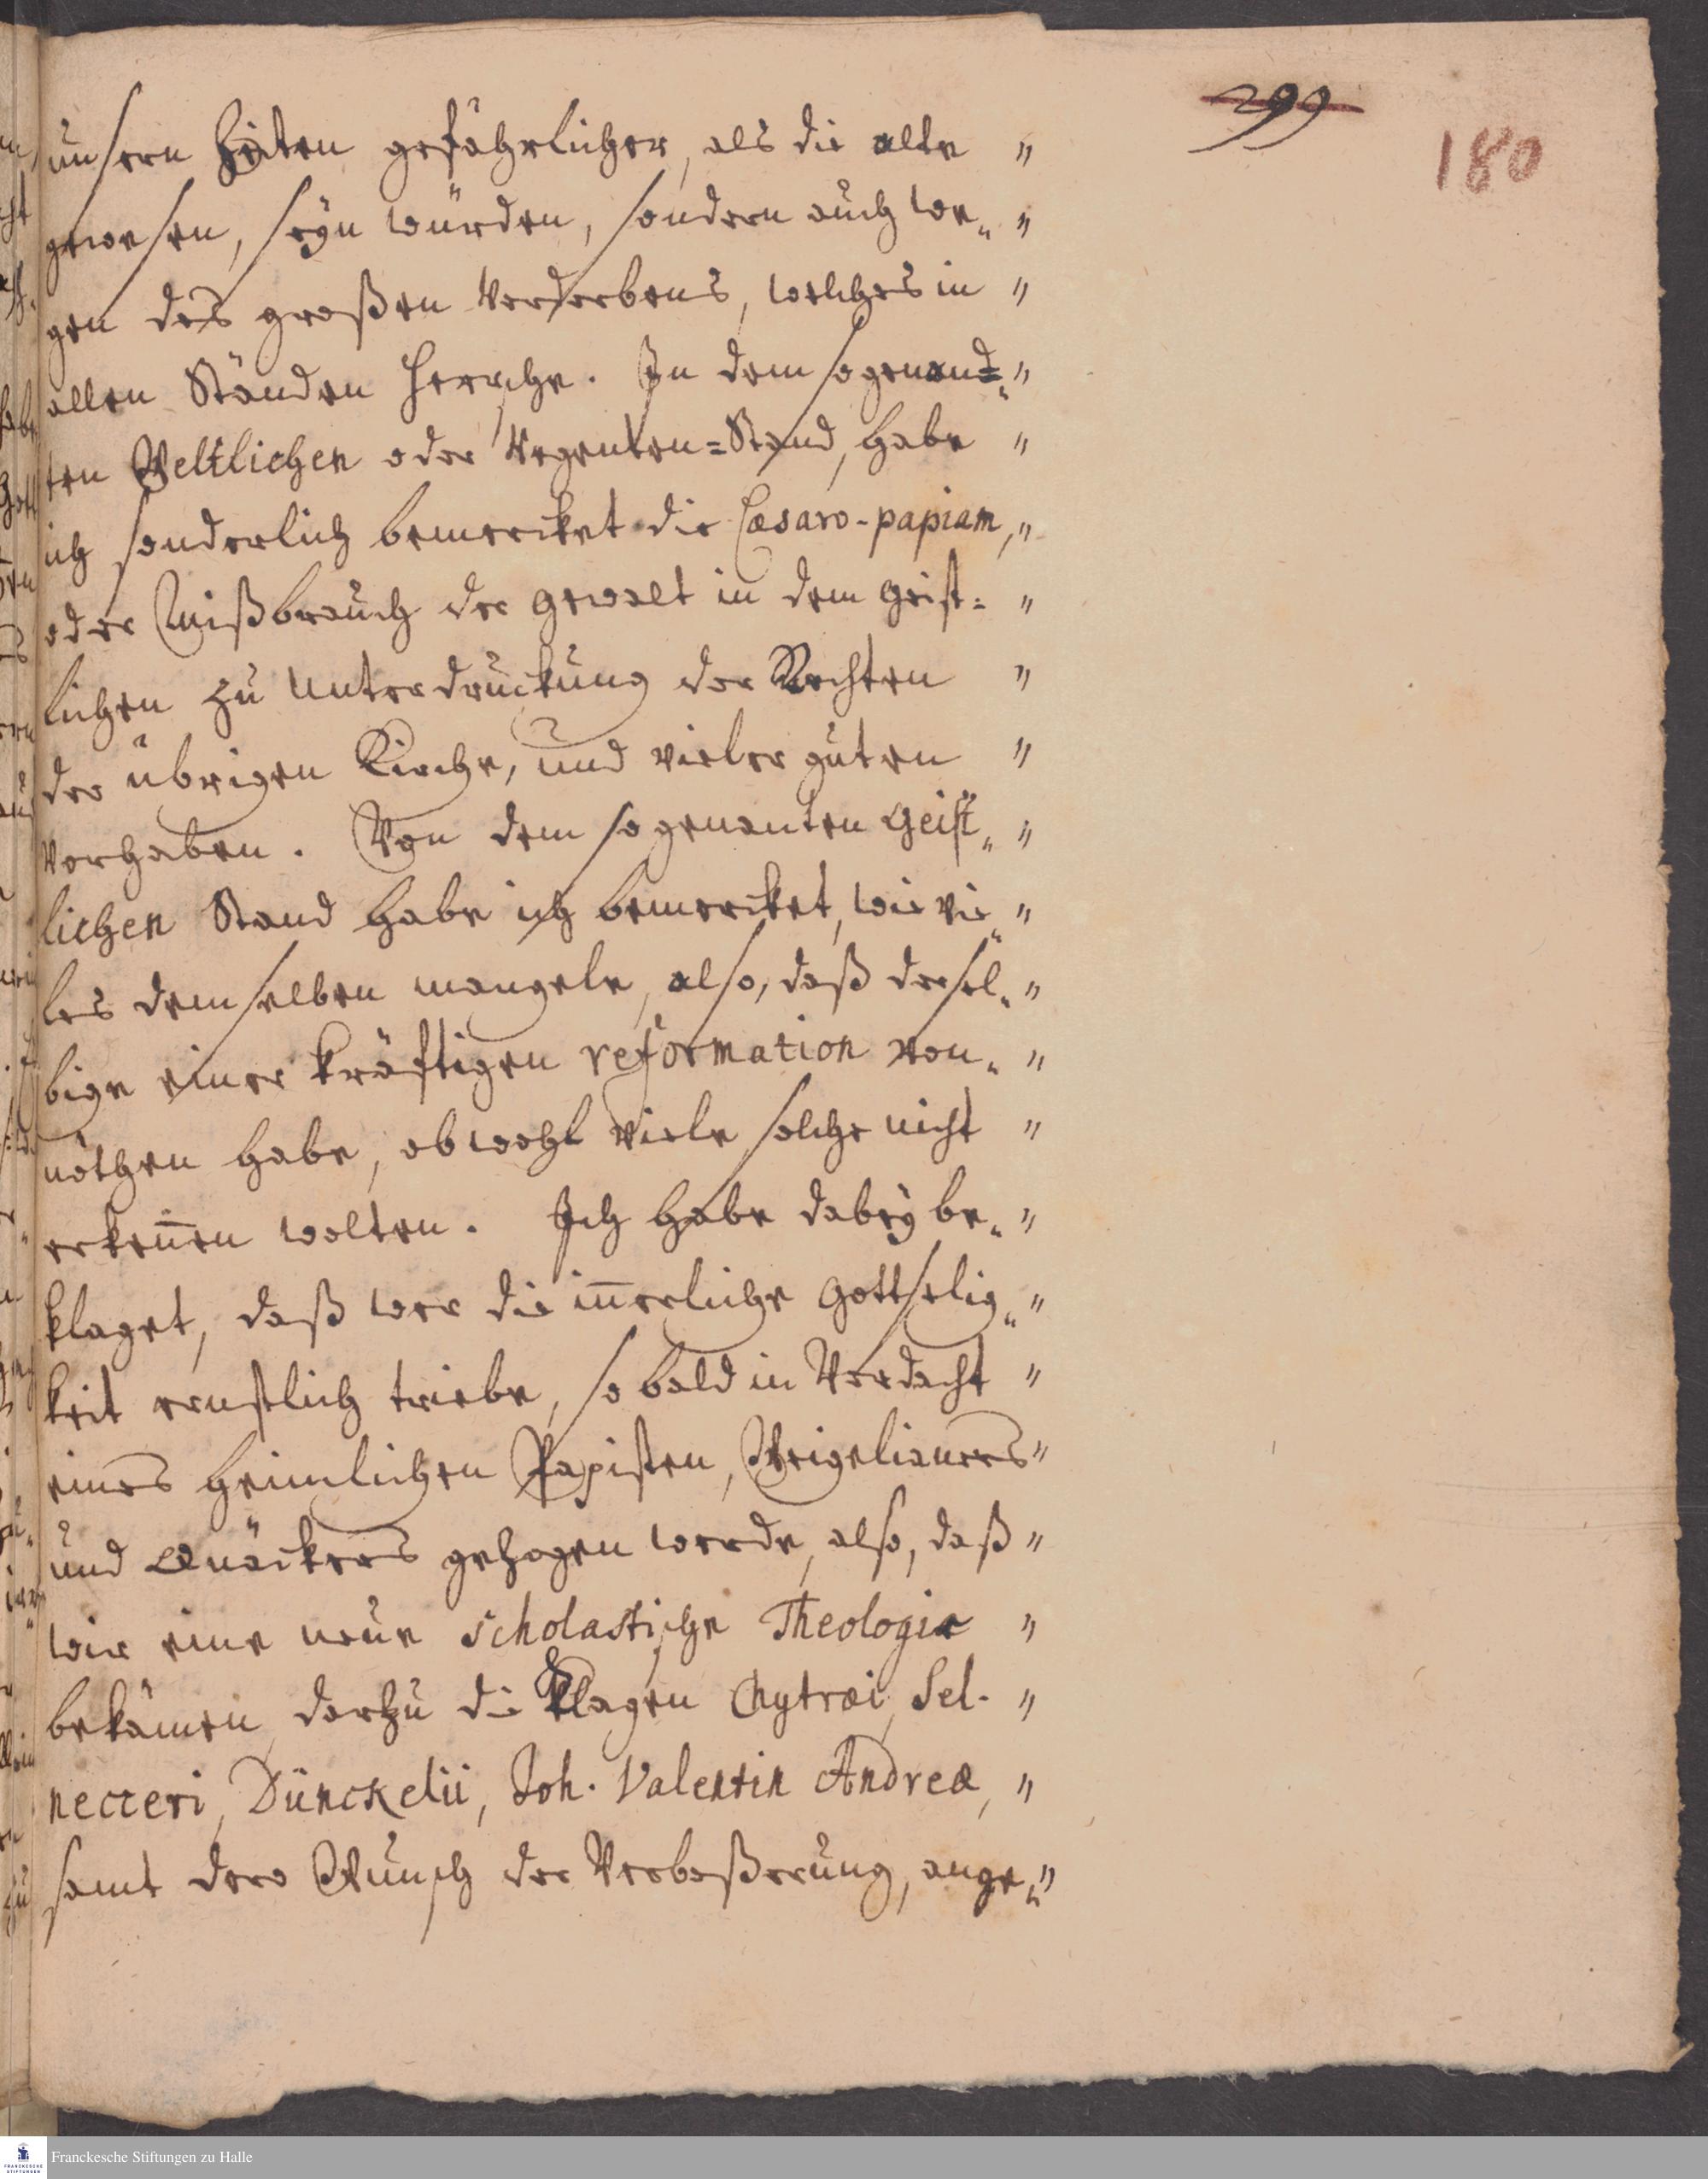 299
180
unsern Zeiten gefährlicher, als die alte "
gewesen, seyn würden, sondern auch we„ "
gen des großen Verderbens, welches in "
allen Ständen herrsche. In dem sogenand= "
ten Weltlichen oder Regenten=Stand, habe "
ich sonderlich bemercket die Cæsaro-papiam, "
oder Mißbrauch der Gewalt in dem Geist= "
lichen zu Unterdruckung der Rechten "
der übrigen Kirche, und vieler guten "
Vorhaben. Von dem so genanten Geist„ "
lichen Stand habe ich bemercket, wie vie„ "
les demselben mangele, also, daß dersel„ "
bige einer kräftigen reformation von„ "
nöthen habe, obwohl viele solche nicht "
erkeñen wolten. Ich habe dabey be„ "
klaget, daß wer die iñerliche Gottselig„ "
keit ernstlich triebe, so bald in Verdacht "
eines heimlichen Papisten, Weigelianers "
und Quäckers gezogen werde, also, daß "
wir eine neue scholastische Theologie "
bekämen, darzu die Klagen Chytræi, Sel- "
necceri, Dünckelii, Joh. Valentin Andreæ, "
samt dero Wunsch der Verbeßerung, ange„ "
Franckesche Stiftungen zu Halle
FRANCKESCHE
STIFTUNGEN